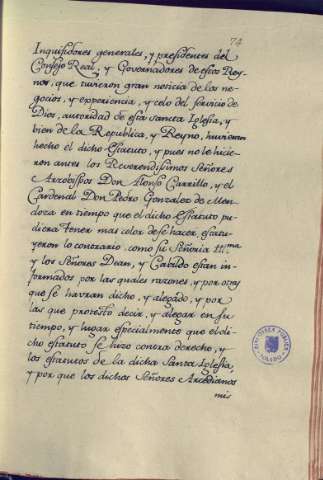 74
Inquisidores generales, y presidentes del
Consejo Real, y Governadores de estos Rey-
nos, que tuvieron gran noticia de los ne-
gocios, y experiencia, y celo del servicio de
Dios, autoridad de esta sancta Iglesia, y
bien de la Republica, y Reyno, huvieran
hecho el dicho Estatuto, y pues no le hicie-
ron antes los Reverendisimos Señores
Arzobispos Don Alonso Carrillo, y el
Cardenal Don Pedro Gonzalez de Men-
doza en tiempo que el dicho Estatuto pu-
diera tener mas color de se hacer, estatu-
yeron lo contrario como su Señoria Ill.ma
y los Señores Dean, y Cabildo estan in-
formados por las quales razones, y por otras
que se havran dicho, y alegado, y por
las que protesto decir, y alegar en su
tiempo, y lugar especialmente que el di-
cho estatuto se hizo contra derecho, y
los estatutos de la dicha Santa Iglesia,
y por que los dichos Señores Arcedianos
mis
BIBLIOTECA PUBLICA
TOLEDO